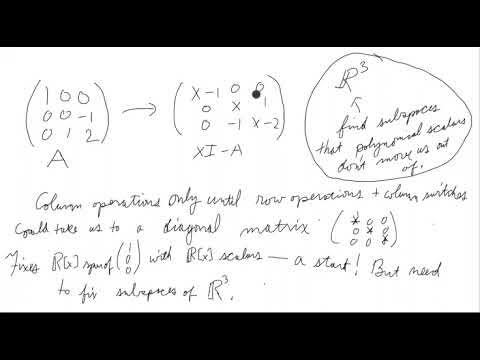 ( 1 0 0 )
( 0 0 -1 )
( 0 1 2 )
A
→
( x-1 0 0 )
( 0 x 1 )
( 0 -1 x-2 )
XI-A
ℝ³
find subspaces
that polynomial scalars
don't move us out
of.
Column operations only until row operations + column switches
could take us to a diagonal matrix ( * 0 0 )
( 0 * 0 )
( 0 0 * )
Fixes ℝ[x] span of ( 1 0 0 ) with ℝ[x] scalars — a start! But need
to fix subspaces of ℝ³.